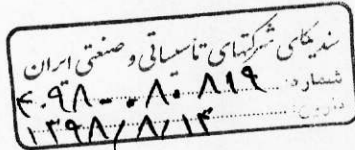 سندیکای شرکتهای تاسیساتی و صنعتی ایران
شماره: ۴۰۹۸-۰۸۰۸۱۹
تاریخ: ۱۳۹۸/۸/۱۳